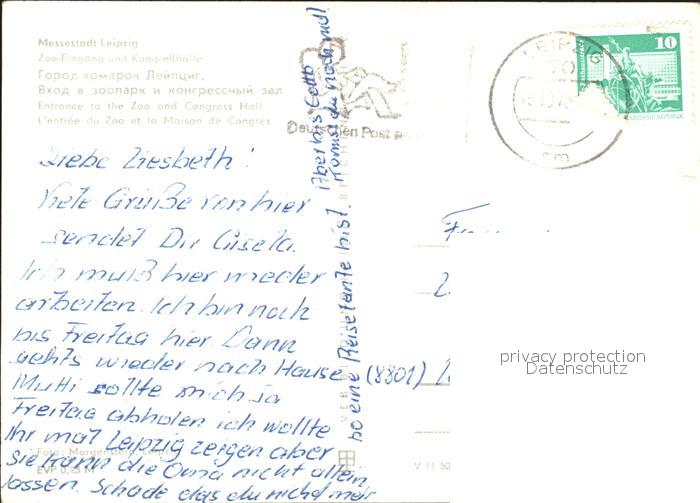 Messestadt Leipzig
Zoo-Eingang und Kongreßhalle
Город ярмарок Лейпциг.
Вход в зоопарк и конгрессный зал
Entrance to the Zoo and Congress Hall
L'entrée du Zoo et la Maison de Congrès
Deutschen Post
LEIPZIG
70
10
Liebe Liesbeth!
Viele Grüße von hier
sendet Dir Gisela.
Ich muß hier wieder
arbeiten. Ich bin noch
bis Freitag hier. Dann
gehts wieder nach Hause (8801)
Mutti sollte mich ja
Freitag abholen ich wollte
ihr mal Leipzig zeigen aber
sie kann die Oma nicht allein
lassen. Schade das du nicht mehr
so eine Reisetante bist.
Foto: Morgenstern,
EVP 0,25 M
V 11 50
privacy protection
Datenschutz